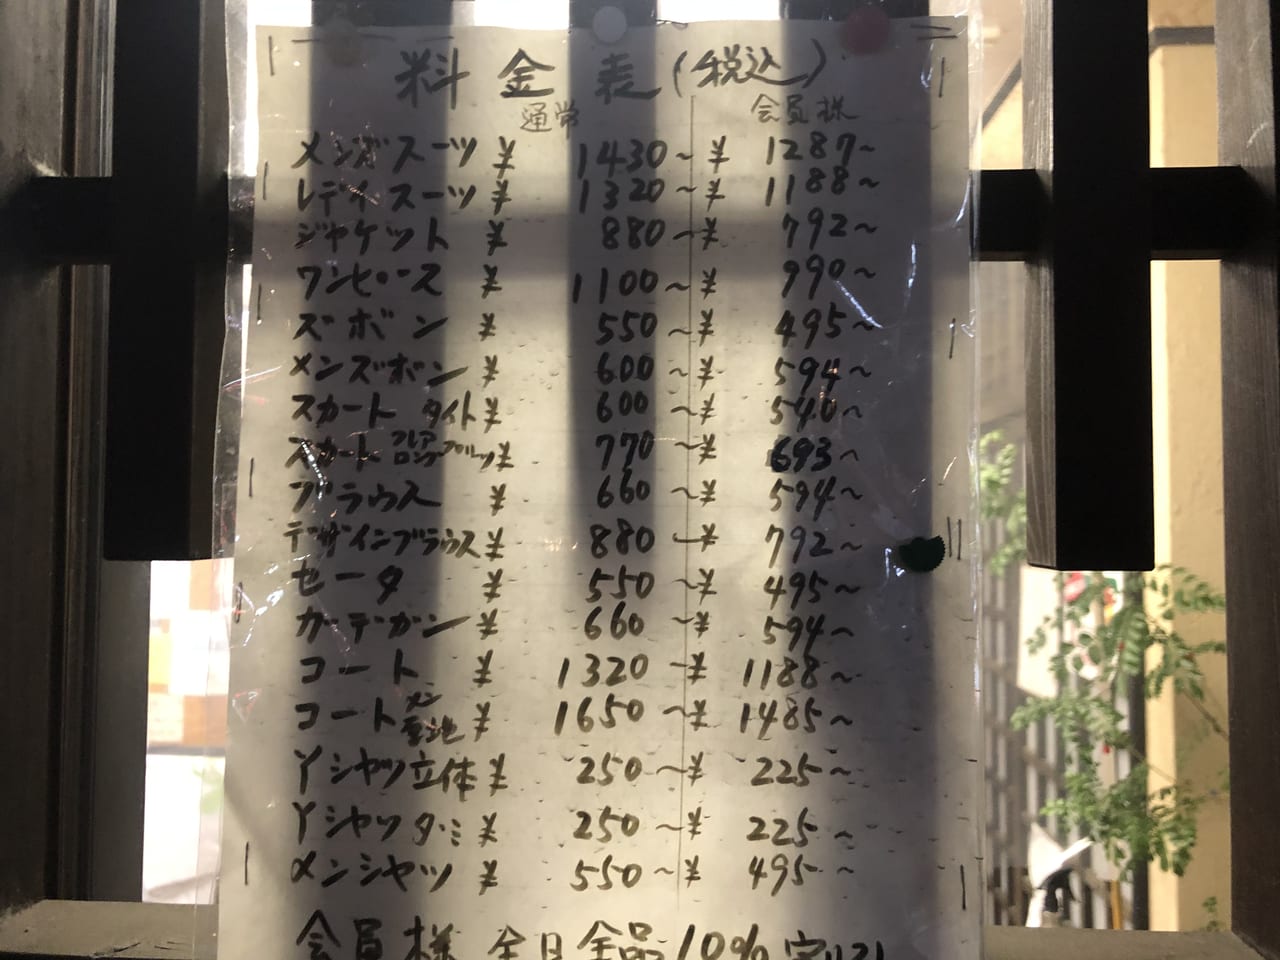 料金表(税込)
通常 会員様
メンズスーツ ¥ 1430~ ¥ 1287~
レディスーツ ¥ 1320~ ¥ 1188~
ジャケット ¥ 880~ ¥ 792~
ワンピース ¥ 1100~ ¥ 990~
ズボン ¥ 550~ ¥ 495~
メンズボン ¥ 600~ ¥ 594~
スカート タイト ¥ 600~ ¥ 540~
スカート フレア ロングプリーツ ¥ 770~ ¥ 693~
ブラウス ¥ 660~ ¥ 594~
デザインブラウス ¥ 880~ ¥ 792~
セータ ¥ 550~ ¥ 495~
カーデガン ¥ 660~ ¥ 594~
コート ¥ 1320~ ¥ 1188~
コート メン ¥ 1650~ ¥ 1485~
Yシャツ立体 ¥ 250~ ¥ 225~
Yシャツタミ ¥ 250~ ¥ 225~
メンシャツ ¥ 550~ ¥ 495~
会員様 全日全品10%